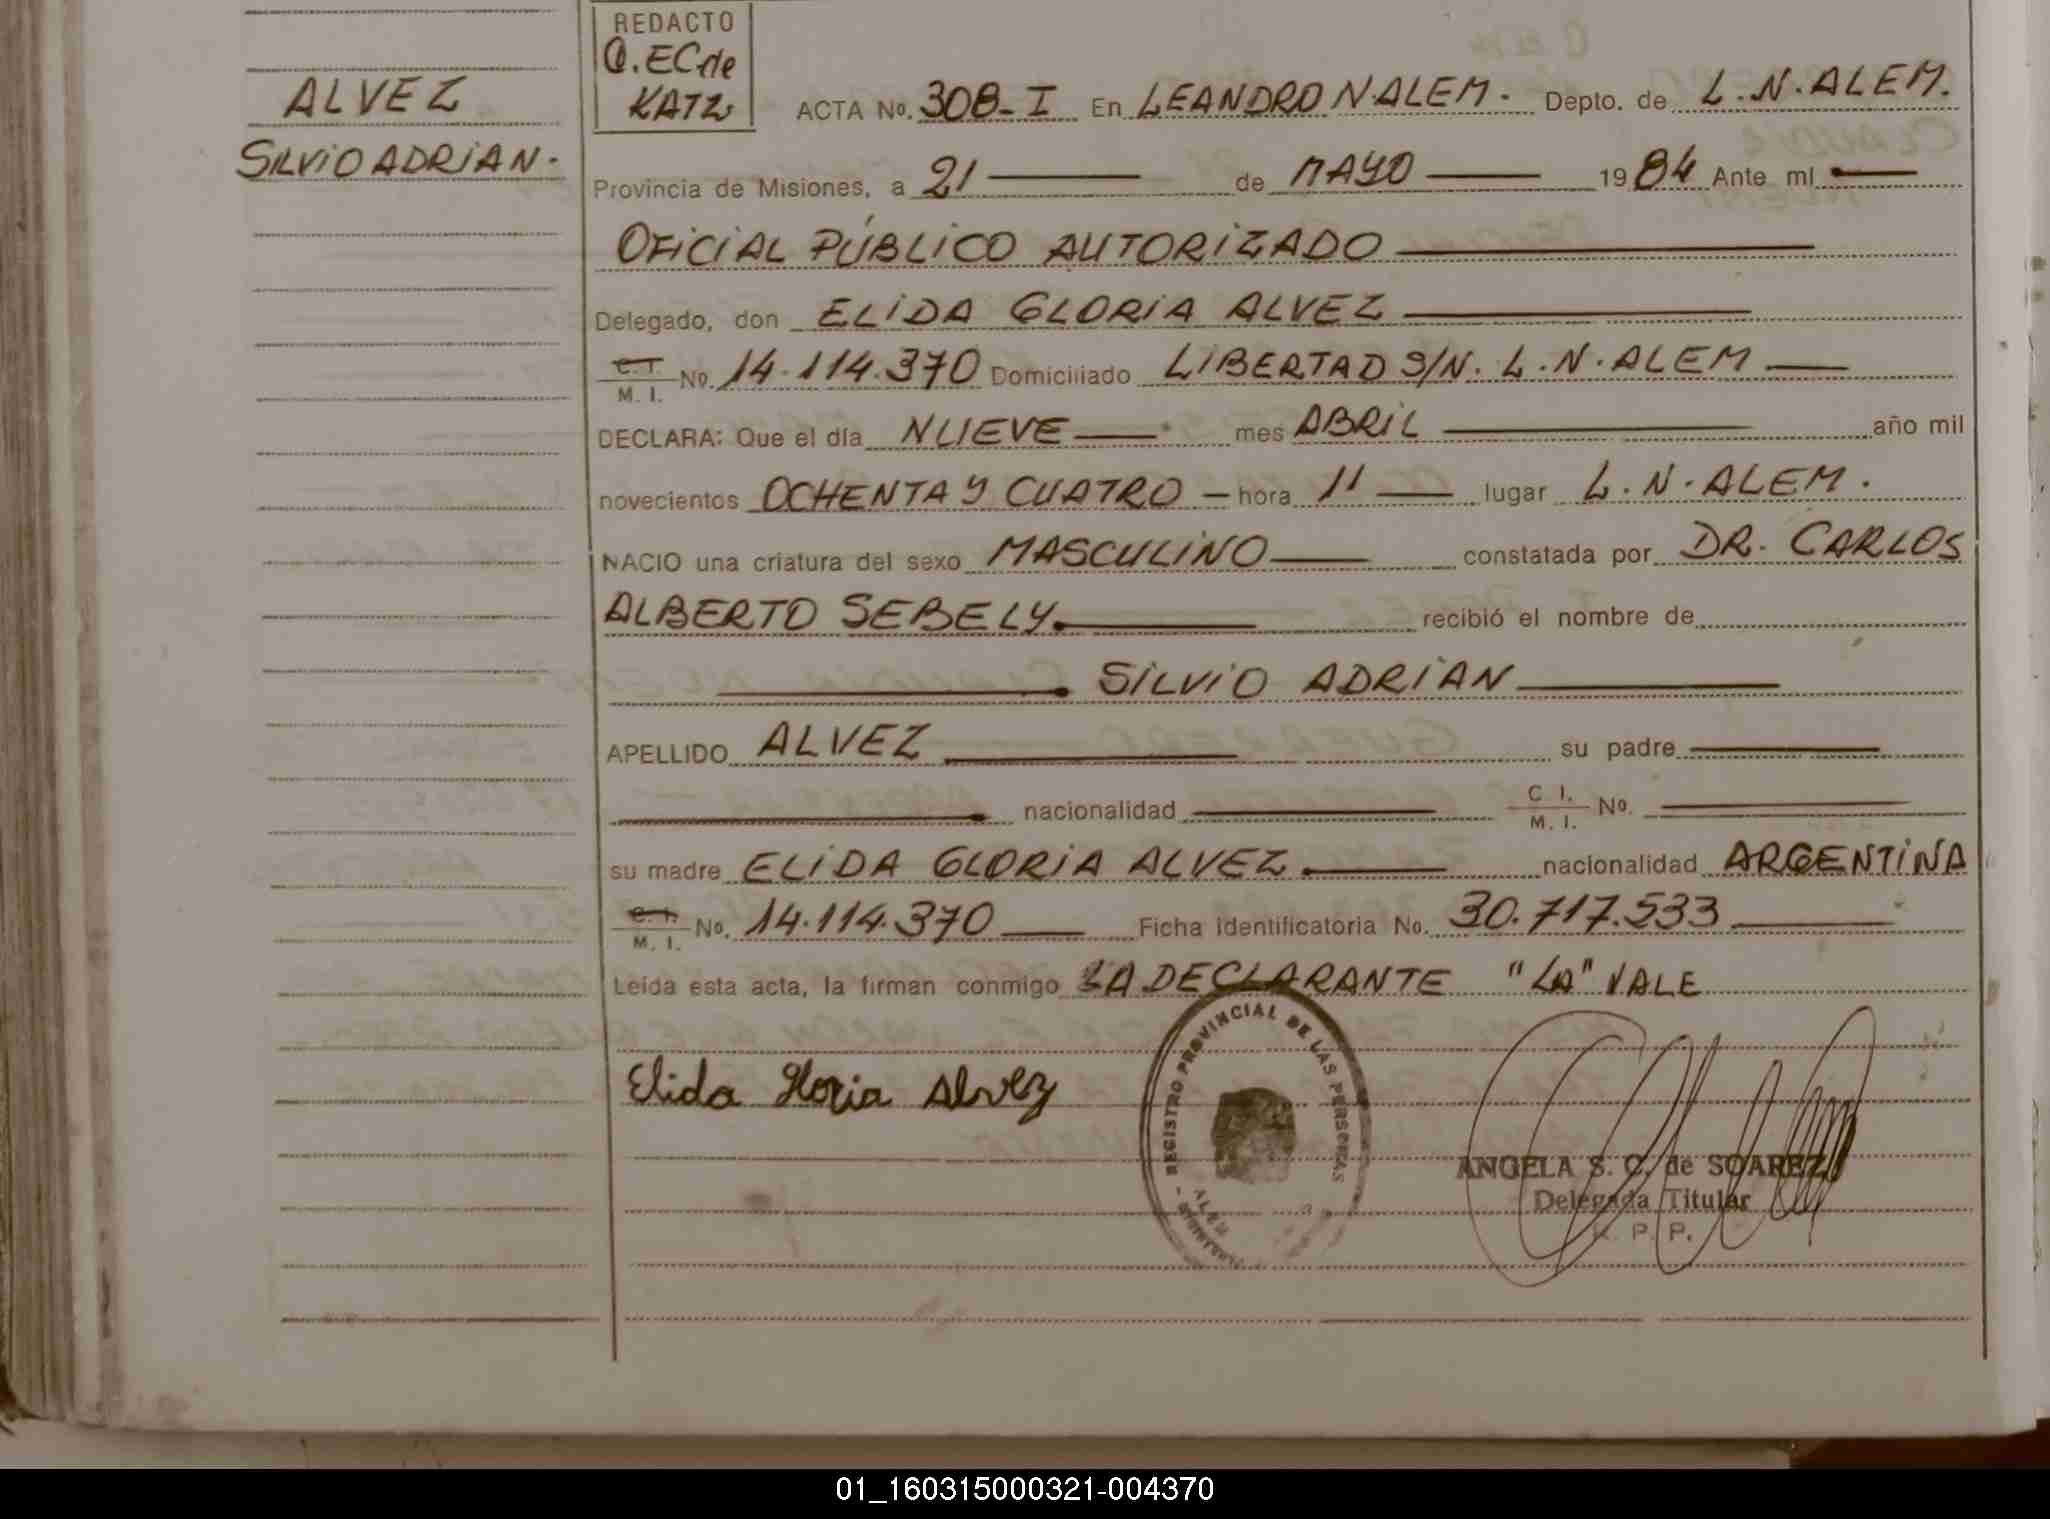 ALVEZ
SILVIO ADRIAN.
REDACTO
KATZ
ACTA No. 308-I En LEANDRO N. ALEM. Depto. de L. N. ALEM.
Provincia de Misiones, a 21 de MAYO 1984 Ante mí
OFICIAL PÚBLICO AUTORIZADO
Delegado, don ELIDA GLORIA ALVEZ
C.I. M. I. No. 14.114.370 Domiciliado LIBERTAD S/N. L. N. ALEM
DECLARA: Que el día NUEVE mes ABRIL año mil
novecientos OCHENTA Y CUATRO hora 11 lugar L. N. ALEM.
NACIO una criatura del sexo MASCULINO constatada por DR. CARLOS
ALBERTO SEBELY recibió el nombre de
SILVIO ADRIAN
APELLIDO ALVEZ su padre
nacionalidad C I. M. I. No.
su madre ELIDA GLORIA ALVEZ nacionalidad ARGENTINA
C. I. M. I. No. 14.114.370 Ficha identificatoria No. 30.717.533
Leída esta acta, la firman conmigo LA DECLARANTE "LA" VALE
REGISTRO PROVINCIAL DE LAS PERSONAS
ALEM
Elida Gloria Alvez
ANGELA S. C. de SOAREZ
Delegada Titular
R. P. P.
01_160315000321-004370